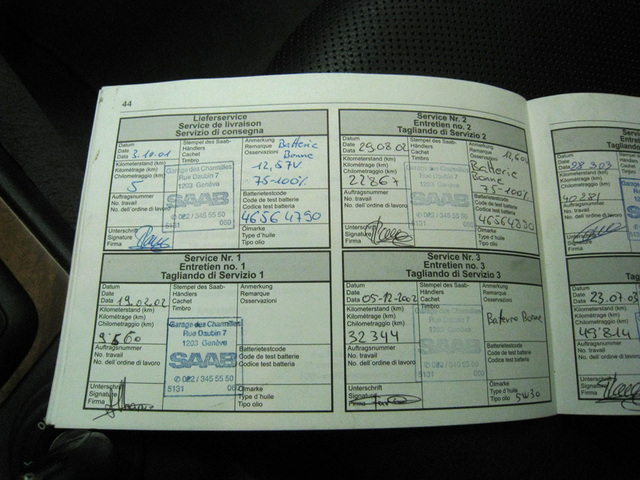 44
Lieferservice
Service de livraison
Servizio di consegna
Datum
Date
Data 3.10.01
Kilometerstand (km)
Kilométrage (km)
Chilometraggio (km)
5
Auftragsnummer
No. travail
No. dell'ordine di lavoro
Unterschrift
Signature
Firma
Stempel des Saab-
Händlers
Cachet
Timbro
Garage des Charmilles
Rue Daubin 7
1203 Genève
SAAB
✆ 022 / 345 55 50
Anmerkung
Remarque
Osservazioni
Batterie
Bonne
12,57V
75-100%
Batterietestcode
Code de test batterie
Codice test batteria
46564790
Ölmarke
Type d'huile
Tipo olio
Service Nr. 2
Entretien no. 2
Tagliando di Servizio 2
Datum
Date
Data 29.08.02
Kilometerstand (km)
Kilométrage (km)
Chilometraggio (km)
22867
Auftragsnummer
No. travail
No. dell'ordine di lavoro
Unterschrift
Signature
Firma
Stempel des Saab-
Händlers
Cachet
Timbro
SAAB
Anmerkung
Remarque
Osservazioni
Batterie
Bonne
75-100%
Batterietestcode
Code de test batterie
Codice test batteria
Ölmarke
Type d'huile
Tipo olio
Service Nr. 1
Entretien no. 1
Tagliando di Servizio 1
Datum
Date
Data 19.02.02
Kilometerstand (km)
Kilométrage (km)
Chilometraggio (km)
Auftragsnummer
No. travail
No. dell'ordine di lavoro
Unterschrift
Signature
Firma
Stempel des Saab-
Händlers
Cachet
Timbro
Garage des Charmilles
Rue Daubin 7
1203 Genève
SAAB
✆ 022 / 345 55 50
5131 000
Anmerkung
Remarque
Osservazioni
Batterietestcode
Code de test batterie
Codice test batteria
Ölmarke
Type d'huile
Tipo olio
Service Nr. 3
Entretien no. 3
Tagliando di Servizio 3
Datum
Date
Data 05-12-2002
Kilometerstand (km)
Kilométrage (km)
Chilometraggio (km)
32344
Auftragsnummer
No. travail
No. dell'ordine di lavoro
Unterschrift
Signature
Firma
Stempel des Saab-
Händlers
Cachet
Timbro
SAAB
Anmerkung
Remarque
Osservazioni
Batterie Bonne
Batterietestcode
Code de test batterie
Codice test batteria
Ölmarke
Type d'huile
Tipo olio 5W30
Datum
Date
Data 28.3.03
Kilometerstand (km)
Kilométrage (km)
Chilometraggio (km)
40281
Auftragsnummer
No. travail
No. dell'ordine
Unterschrift
Signature
Firma
Datum
Date
Data
Kilometerstand (km)
Kilométrage (km)
Chilometraggio (km)
Auftragsnummer
No. travail
No. dell'ordine
Unterschrift
Signature
Firma